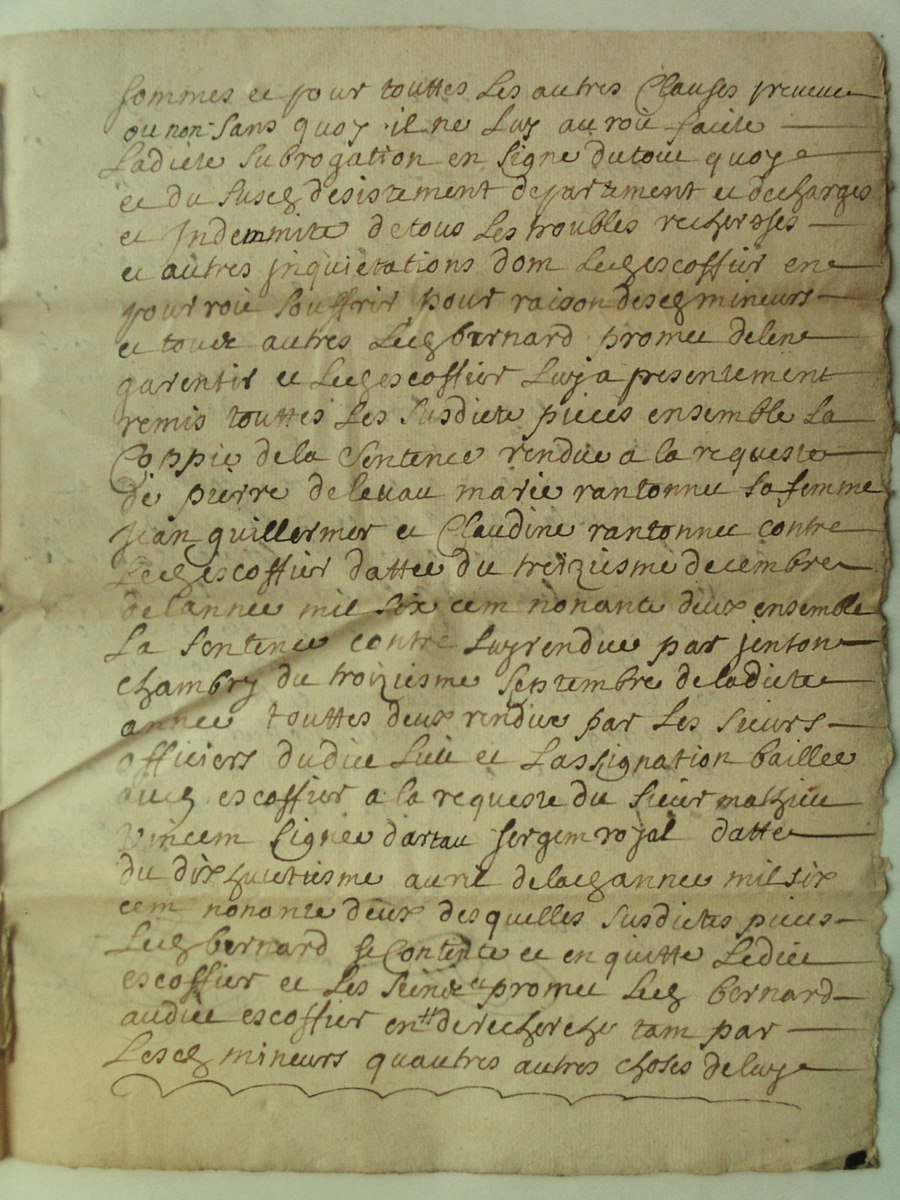 sommes et pour touttes les autres Clauses preveue
ou non sans quoy il ne luy auroit faicte
Ladicte subrogation en signe dutout quoy
et du susd desistement departement et decharges
et Indemnite detous Les troubles recherches
et autres Inquietations dont Led escoffier en
pourroit souffrir pour raison desd mineurs
et tout autres Led bernard promet delen
garentir et Led escoffier Luy a presentement
remis touttes Les susdicte pieces ensemble La
Coppie dela Sentence rendue a la requeste
de pierre delevau marie rantonnet sa femme
jean guillermet et Claudine rantonnet contre
Led escoffier dattee du treiziesme decembre
delannee mil six cent nonante deux ensemble
La Sentence contre Luy rendue par
chambry du troiziesme Septembre deladicte
annee touttes deux rendue par Les sieurs
officiers dudict Lieu et Lassignation baillee
aud escoffier a la requeste du sieur mathieu
vincent signee dartau sergent royal datte
du dix huictiesme avril delad annee mil six
cent nonante deux desquelles susdictes pieces
Led bernard se Contente et en quitte Ledict
escoffier et Les siens et promet Led bernard
audict escoffier en derecherche tant par
Lesd mineurs quautres autres choses deluy